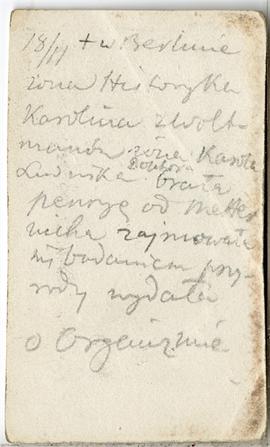 18/11 + w Berlinie
żona Historyka
Karolina z Wolt-
manów żona Karola
Ludwika Doktora brała
pensyę od Metter
nicha zajmowała
się badaniem przy-
rody wydała
o Organizmie